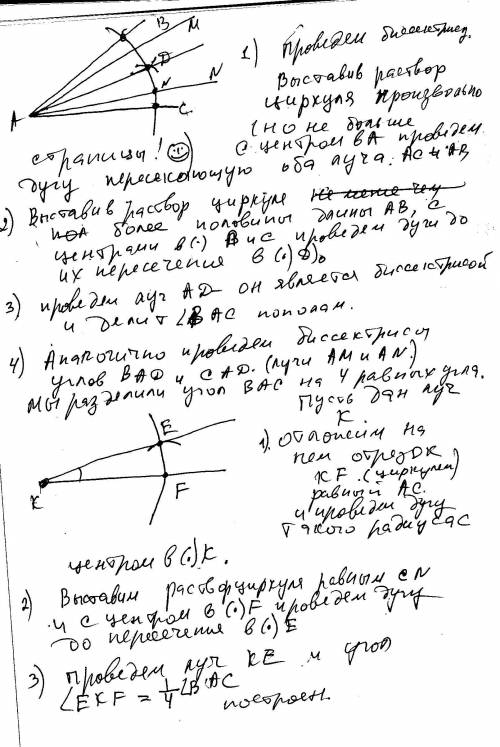 B M
D
N N
A C
1) Проведем биссектрису.
Выставив раствор
циркуля произвольно
(но не больше
страницы!) с центром в A проведем
дугу пересекающую оба луча AC и AB
2) Выставив раствор циркуля не менее чем
более половины длины AB, с
центрами в (·) B и C проведем дуги до
их пересечения в (·) D.
3) проведем луч AD он является биссектрисой
и делит ∠BAC пополам.
4) Аналогично проведем биссектрисы
углов BAD и CAD. (лучи AM и AN)
Мы разделили угол BAC на 4 равных угла.
Пусть дан луч
K.
E
K F
1). отложим на
нем отрезок
KF. (циркулем)
равный AC.
и проведем дугу
такого радиуса с
центром в (·) K.
2) Выставим раствор циркуля равным CN
и с центром в (·) F проведем дугу
до пересечения в (·) E
3) Проведем луч KE и угол
∠EKF = 1/4 ∠BAC
построен.